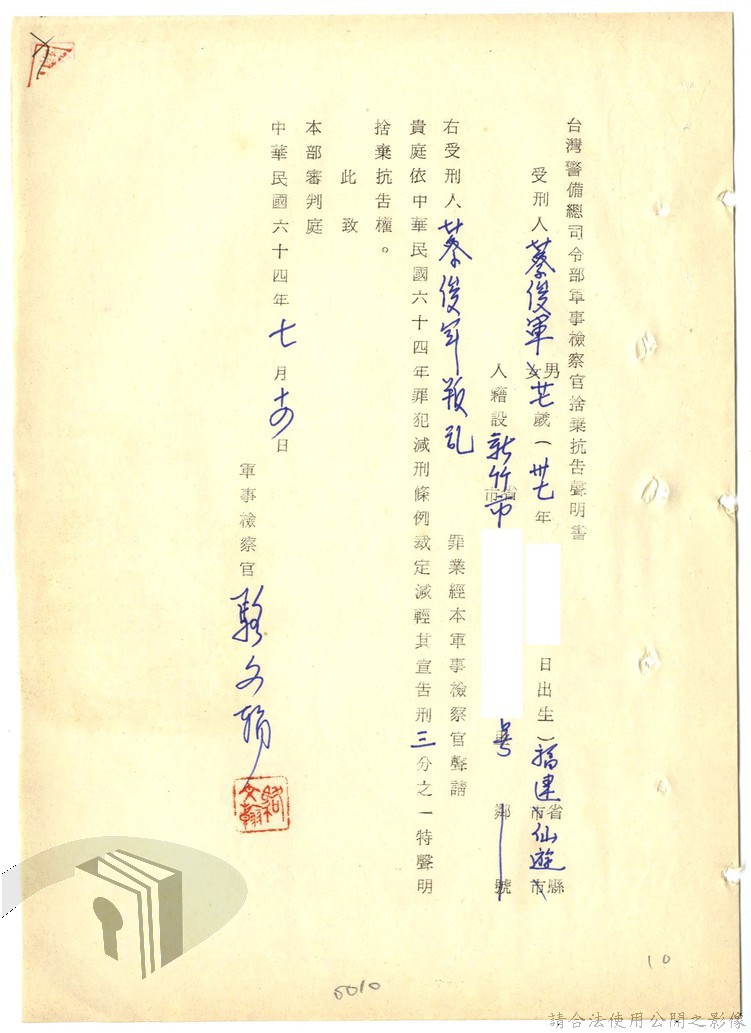 台灣警備總司令部軍事檢察官捨棄抗告聲明書
受刑人蔡俊軍男女廿七歲(卅七年 日出生)福建省市仙遊縣市
人籍設新竹市省市 號鄰號
右受刑人蔡俊軍叛乱 罪業經本軍事檢察官聲請
貴庭依中華民國六十四年罪犯減刑條例裁定減輕其宣告刑三分之一特聲明
捨棄抗告權。
此致
本部審判庭
中華民國六十四年七月十四日
軍事檢察官駱文翰
駱文翰
5010
10
請合法使用公開之影像